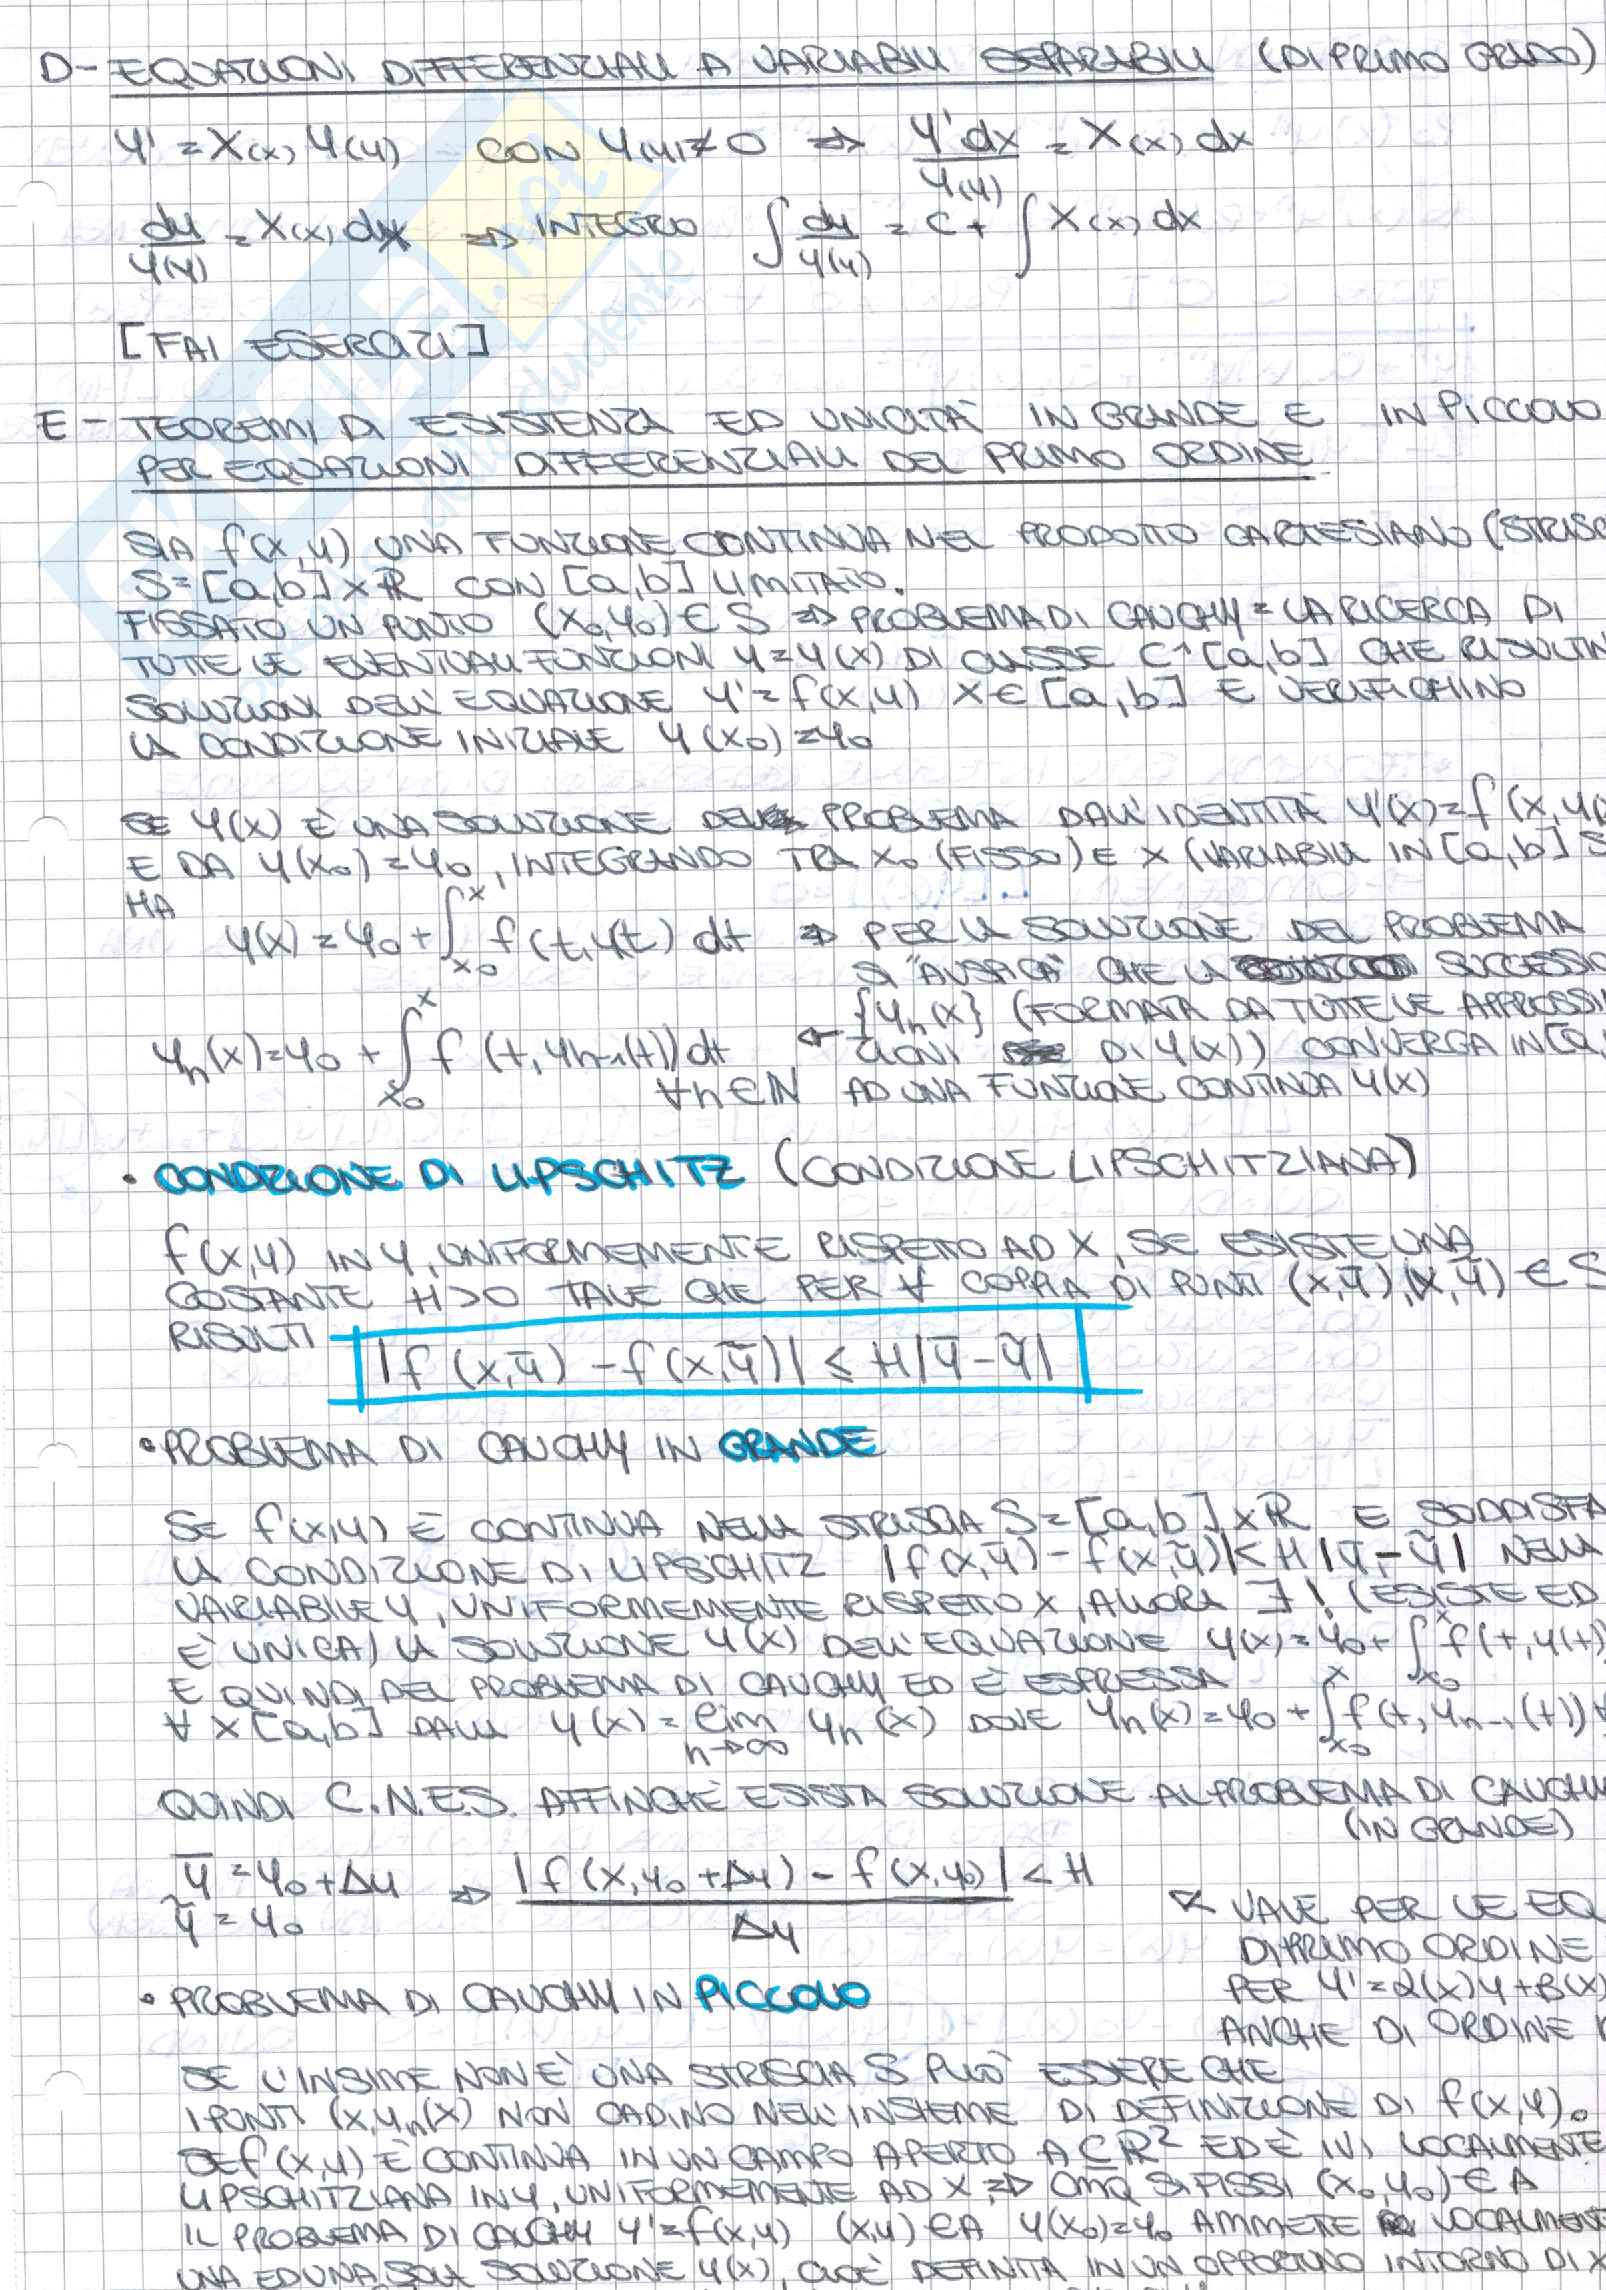 D- EQUAZIONI DIFFERENZIALI A VARIABILI SEPARABILI (DI PRIMO GRADO)
y' = X(x) Y(y) CON Y(y) ≠ 0 ⇒ y'dx/Y(y) = X(x) dx
dy/Y(y) = X(x) dx ⇒ INTEGRO ∫ dy/Y(y) = C + ∫ X(x) dx
[FAI ESERCIZI]
E- TEOREMI DI ESISTENZA ED UNICITÀ IN GRANDE E IN PICCOLO
PER EQUAZIONI DIFFERENZIALI DEL PRIMO ORDINE
SIA f(x,y) UNA FUNZIONE CONTINUA NEL PRODOTTO CARTESIANO (STRISC
S=[a,b]×ℝ CON [a,b] LIMITATO.
FISSATO UN PUNTO (x₀,y₀)∈S ⇒ PROBLEMA DI CAUCHY = LA RICERCA DI
TUTTE LE EVENTUALI FUNZIONI y=y(x) DI CLASSE C¹[a,b] CHE RISULTIN
SOLUZIONI DELL'EQUAZIONE y'=f(x,y) x∈[a,b] E VERIFICHINO
LA CONDIZIONE INIZIALE y(x₀)=y₀
SE y(x) È UNA SOLUZIONE DEL PROBLEMA DALL'IDENTITÀ y'(x)=f(x,y(x
E DA y(x₀)=y₀, INTEGRANDO TRA x₀ (FISSO) E x (VARIABILI IN [a,b] S
HA
y(x) = y₀ + ∫ₓ₀ˣ f(t,y(t) dt ⇒ PER LA SOLUZIONE DEL PROBLEMA
SI CHE LA SUCCESSIO
{yₙ(x} (FORMATA DA TUTTE LE APPROSSI
yₙ(x)=y₀ + ∫ₓ₀ˣ f(t,yₙ₋₁(t))dt ← ZIONI DI y(x)) CONVERGA IN [a,
∀n∈ℕ AD UNA FUNZIONE CONTINUA y(x)
• CONDIZIONE DI LIPSCHITZ (CONDIZIONE LIPSCHITZIANA)
f(x,y) IN y, UNIFORMEMENTE RISPETTO AD x, SE ESISTE UNA
COSTANTE H>0 TALE CHE PER ∀ COPPIA DI PUNTI (x,ȳ),(x,ỹ)∈S
RISULTI |f(x,ȳ) - f(x,ỹ)| ≤ H|ȳ-ỹ|
• PROBLEMA DI CAUCHY IN GRANDE
SE f(x,y) È CONTINUA NELLA STRISCIA S=[a,b]×ℝ E SODDISFA
LA CONDIZIONE DI LIPSCHITZ |f(x,ȳ) - f(x,ỹ)|<H|ȳ-ỹ| NELLA
VARIABILE y, UNIFORMEMENTE RISPETTO x, ALLORA ∃! (ESISTE ED
E' UNICA) LA SOLUZIONE y(x) DELL'EQUAZIONE y(x)=y₀+∫ₓ₀ˣ f(t,y(t))
E QUINDI DEL PROBLEMA DI CAUCHY ED È ESPRESSA
∀ x[a,b] DALLA y(x) = lim n→∞ yₙ(x) DOVE yₙ(x)=y₀+∫ₓ₀ˣ f(t,yₙ₋₁(t))
QUINDI C.N.E.S. AFFINCHÈ ESISTA SOLUZIONE AL PROBLEMA DI CAUCHY
(IN GRANDE)
ȳ = y₀+Δy ⇒ |f(x,y₀+Δy) - f(x,y₀)|/Δy < H
ỹ = y₀
VALE PER LE EQ
DI PRIMO ORDINE
PER y'=α(x)y+β(x)
ANCHE DI ORDINE
• PROBLEMA DI CAUCHY IN PICCOLO
SE L'INSIME NON È UNA STRISCIA S PUÒ ESSERE CHE
I PUNTI (x,yₙ(x) NON CADINO NELL'INSIEME DI DEFINIZIONE DI f(x,y).
SE f(x,y) È CONTINUA IN UN CAMPO APERTO A⊆ℝ² ED È IVI LOCALMENTE
LIPSCHITZIANA IN y, UNIFORMEMENTE AD x, ⇒ OMQ SI FISSI (x₀,y₀)∈A
IL PROBLEMA DI CAUCHY y'=f(x,y) (x,y)∈A y(x₀)=y₀ AMMETTE LOCALMENT
UNA ED UNA SOLA SOLUZIONE y(x), CIOÈ DEFINITA IN UN OPPORTUNO INTORNO DI x